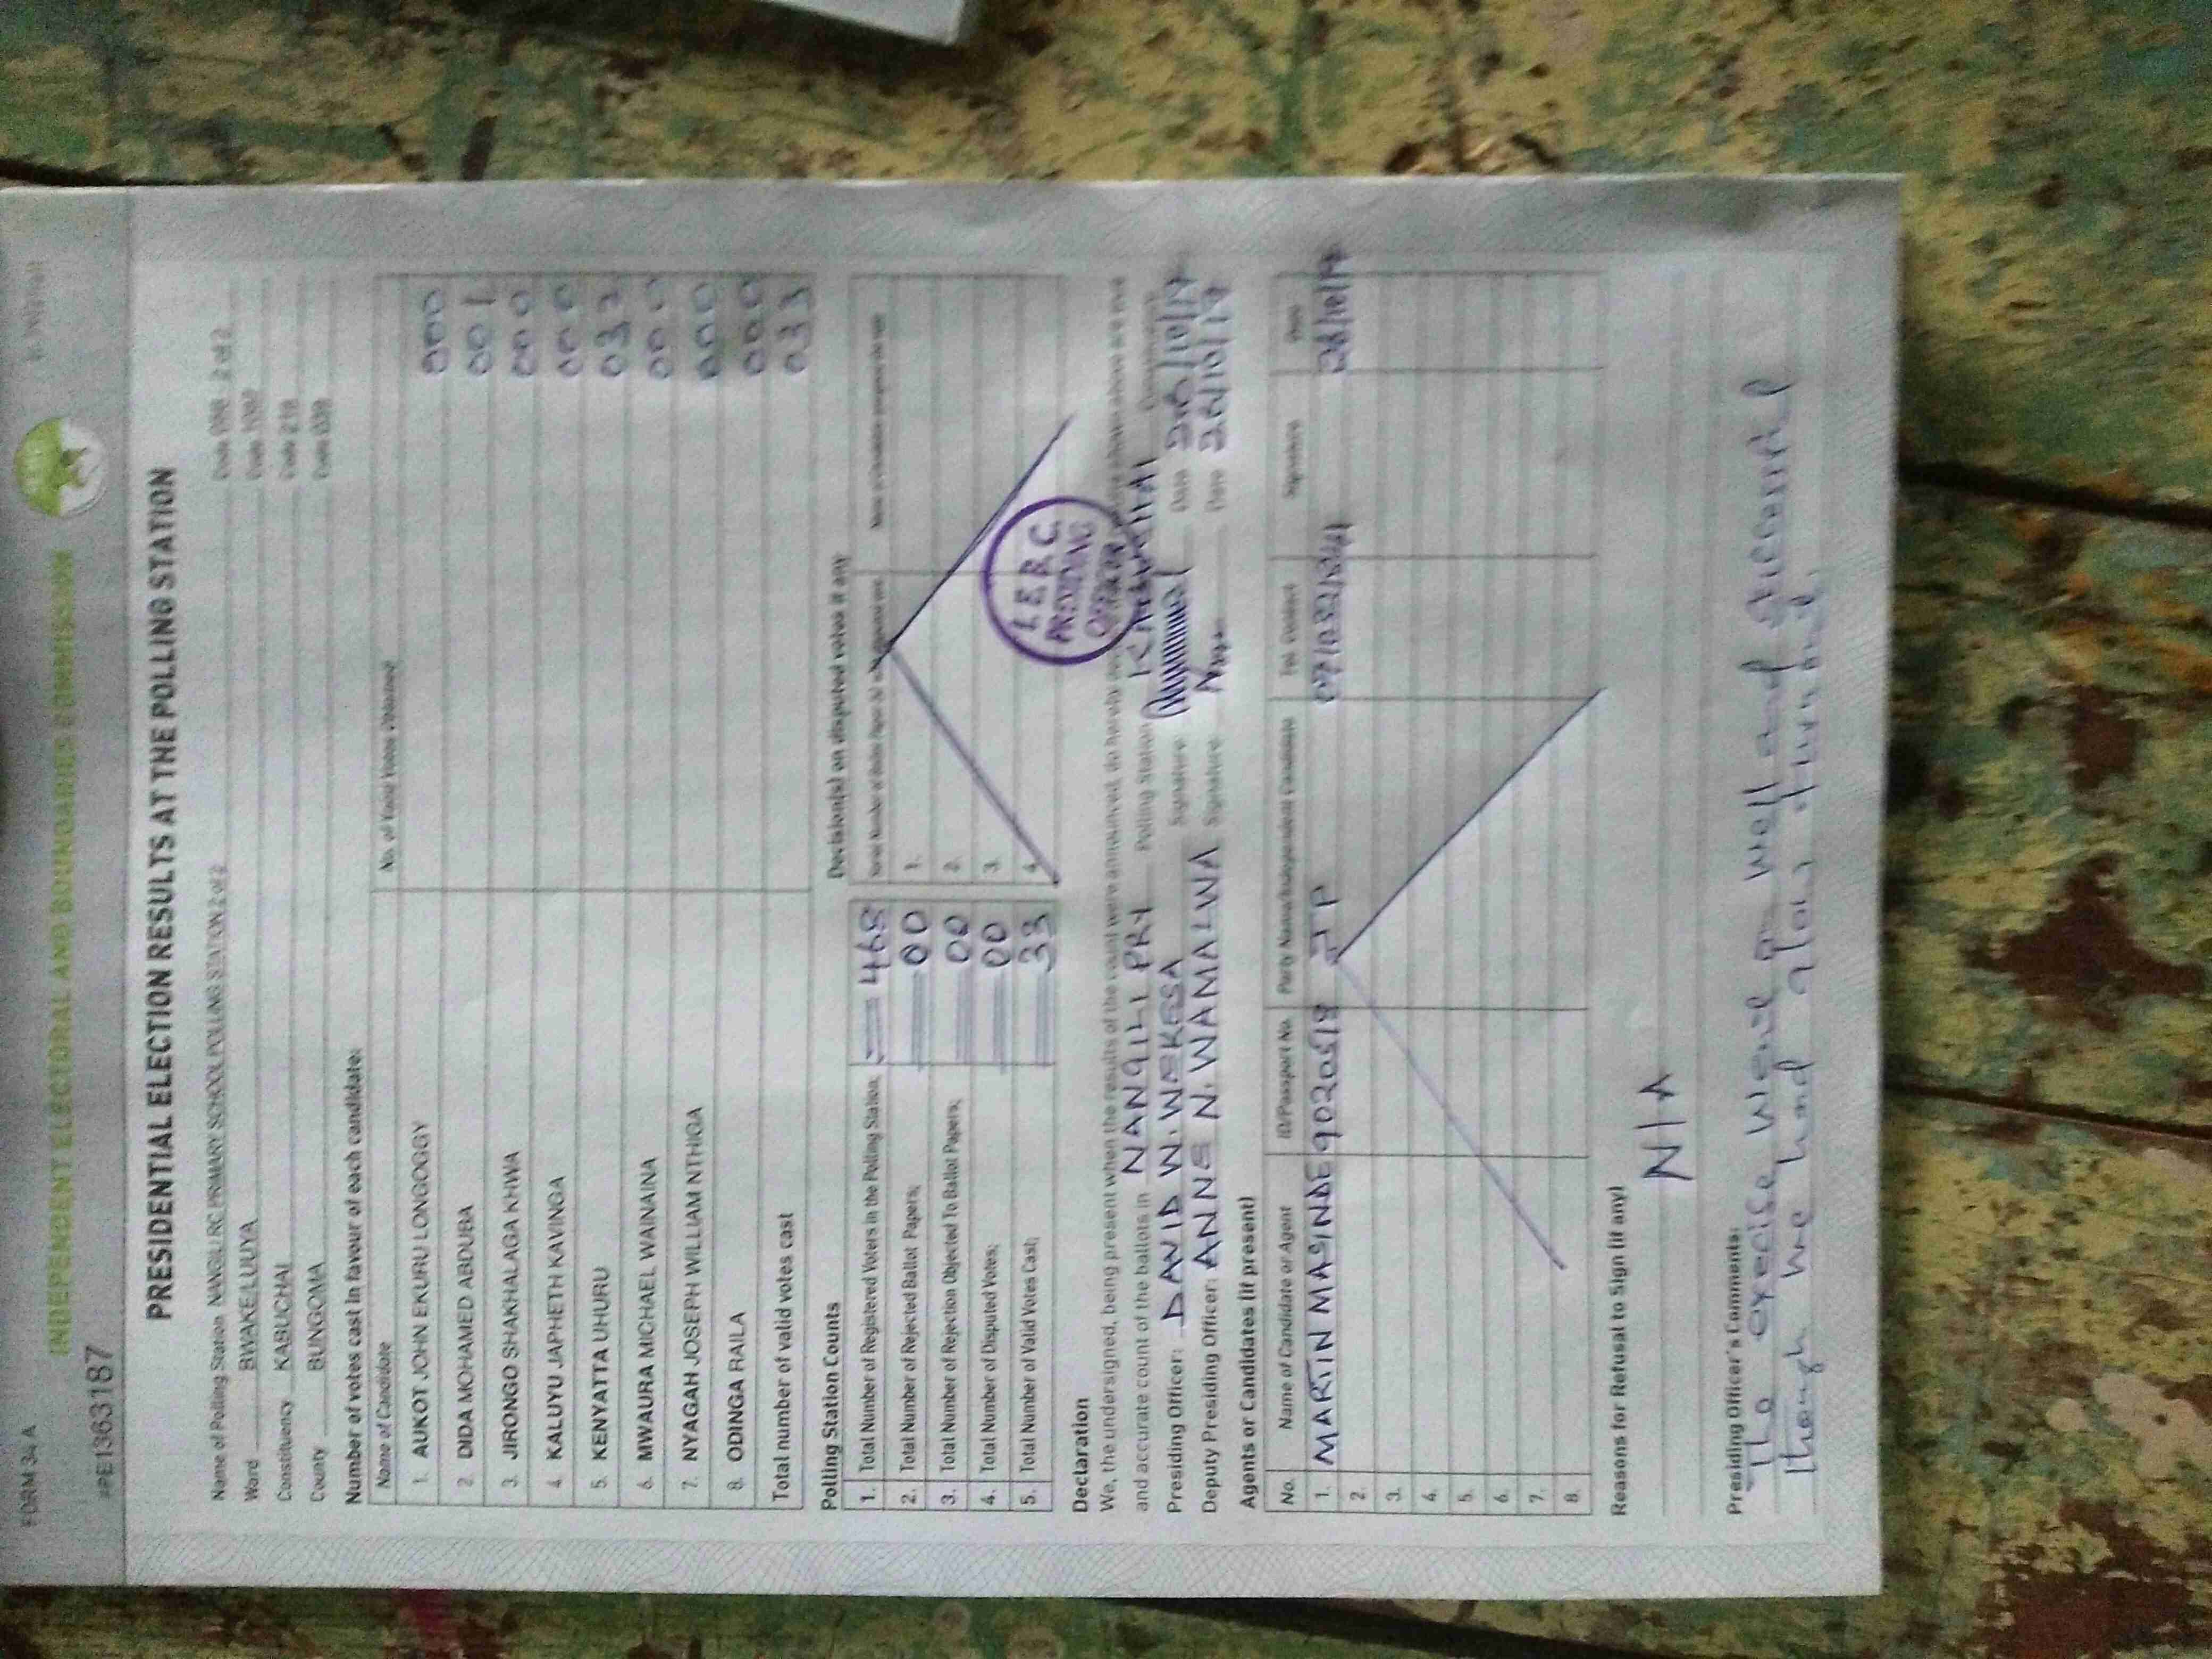 FORM 34 A
INDEPENDENT ELECTORAL AND BOUNDARIES COMMISSION
#PE1363187
PRESIDENTIAL ELECTION RESULTS AT THE POLLING STATION
Name of Polling Station NANGILI RC PRIMARY SCHOOL POLLING STATION 2 of 2 Code 2 of 2
Ward BWAKE/LUUYA Code
Constituency KABUCHAI Code 219
County BUNGOMA Code 039
Number of votes cast in favour of each candidate:
Name of Candidate No. of Valid Votes Obtained
1. AUKOT JOHN EKURU LONGOGGY 000
2. DIDA MOHAMED ABDUBA 001
3. JIRONGO SHAKHALAGA KHWA 000
4. KALUYU JAPHETH KAVINGA 000
5. KENYATTA UHURU 032
6. MWAURA MICHAEL WAINAINA 000
7. NYAGAH JOSEPH WILLIAM NTHIGA 000
8. ODINGA RAILA 000
Total number of valid votes cast 033
Polling Station Counts Decision(s) on disputed votes if any
1. Total Number of Registered Voters in the Polling Station; 468
2. Total Number of Rejected Ballot Papers; 00 1.
3. Total Number of Rejection Objected To Ballot Papers; 00 2.
4. Total Number of Disputed Votes; 00 3.
5. Total Number of Valid Votes Cast; 33 4.
I.E.B.C.
PRESIDING
OFFICER
Declaration
We, the undersigned, being present when the results of the count were announced, do hereby
and accurate count of the ballots in NANGILI PRY Polling Station KABUCHAI Constituency.
Presiding Officer: DAVID W. WEKESA Signature: Date 26/10/17
Deputy Presiding Officer: ANNE N. WAMALWA Signature Date 26/10/17
Agents or Candidates (if present)
No. Name of Candidate or Agent ID/Passport No. Party Name/Independent Candidate Tel. Contact Signature Date
1. MARTIN MASINDE 9020518 JP 26/10/17
2.
3.
4.
5.
6.
7.
8.
Reasons for Refusal to Sign (if any)
N/A
Presiding Officer's Comments:
The exercise went on well and successful
though we had turn out.